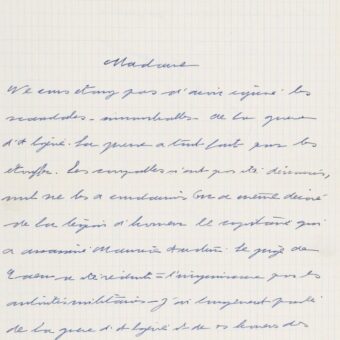 Madame
Ne vous étonnez pas d'avoir ignoré les
scandales de la guerre
d'Algérie. La presse a tout fait pour les
étouffer. Les coupables n'ont pas été
nul ne les a condamnés On a même décoré
de la légion d'honneur le capitaine qui
a assassiné Maurice Audin. Le
par les
autorités militaires - j'ai longuement parlé
de la guerre d'Algérie et de ses horreurs